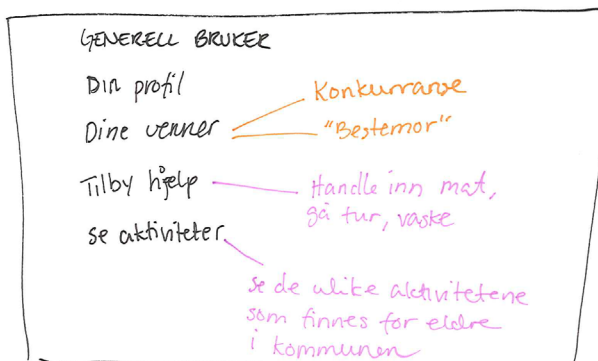 GENERELL BRUKER
Din profil
Dine venner
Konkurranse
"Bestemor"
Tilby hjelp
Handle inn mat,
gå tur, vaske
se aktiviteter
se de ulike aktivitetene
som finnes for eldre
i kommunen